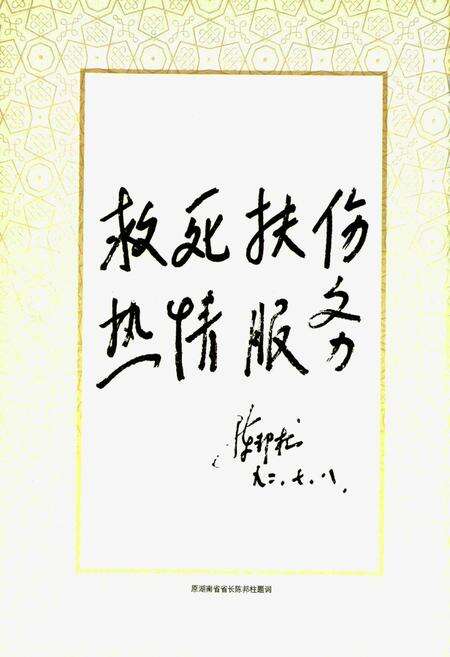 救死扶伤
热情服务
陈邦柱
九二.七.八.
原湖南省省长陈邦柱题词